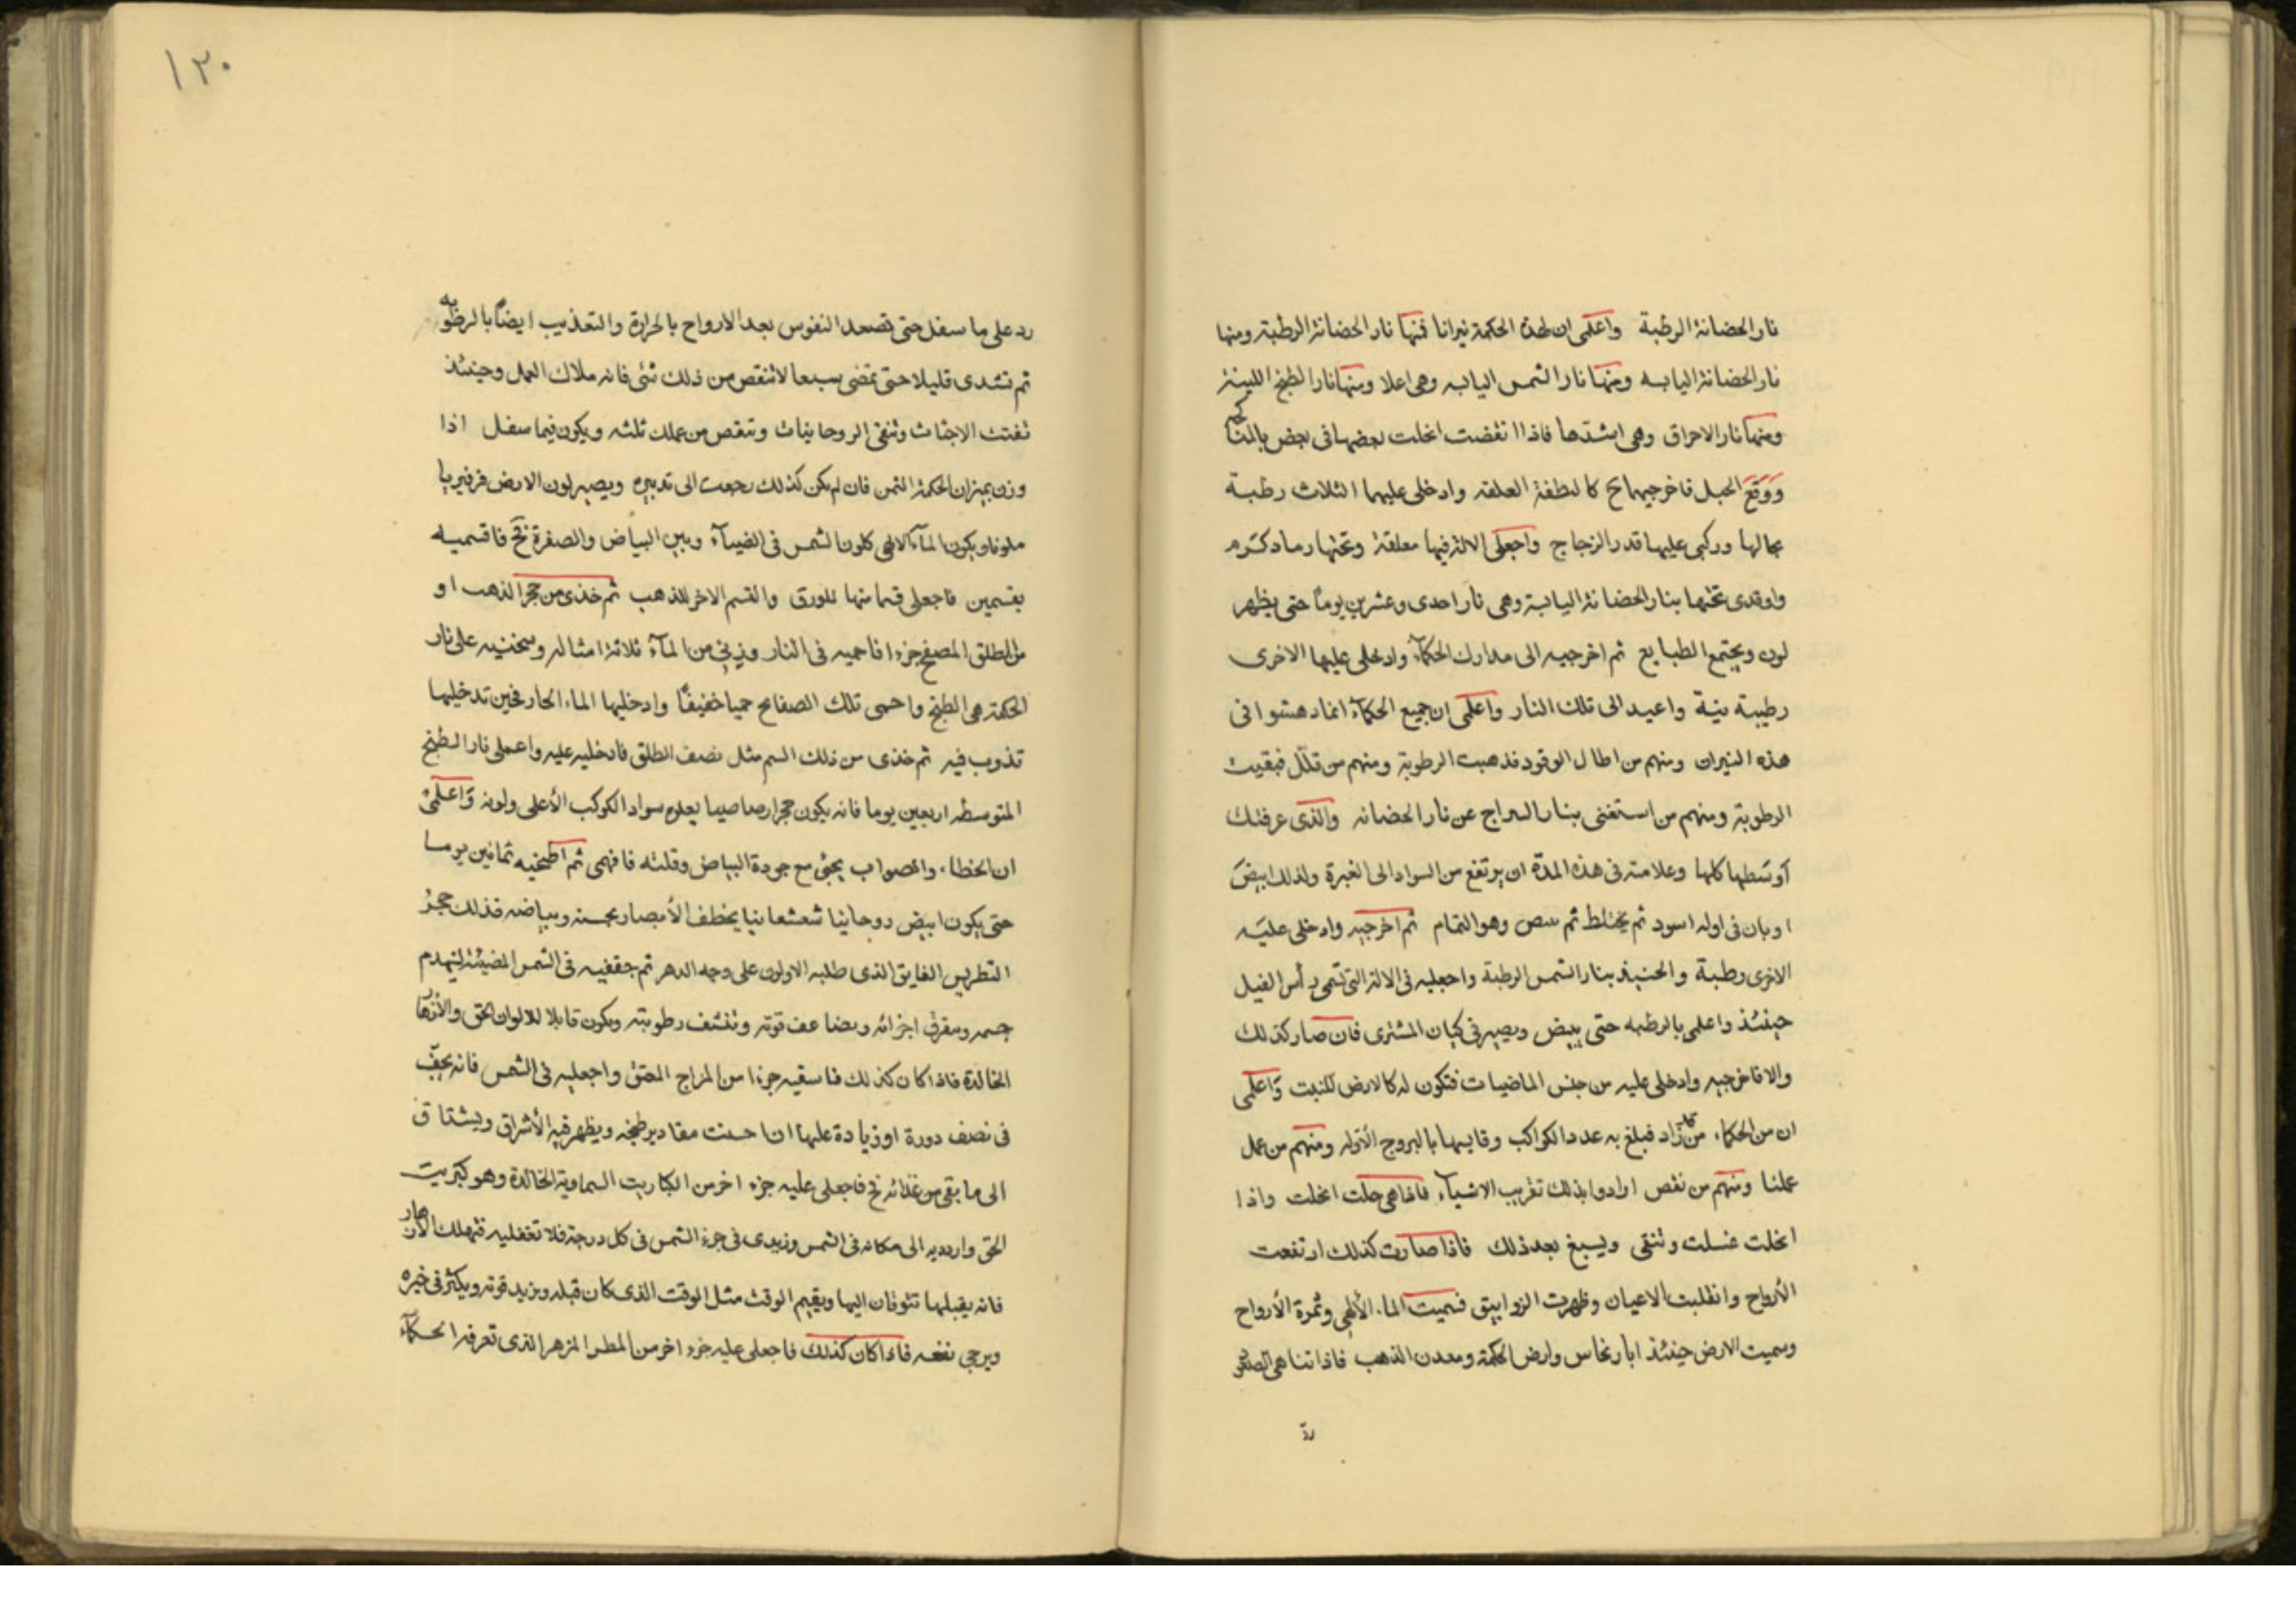 نار الحضانة الرطبة واعلمى ان لهذه الحكمة نيرانا فمنها نار الحضانة الرطبة ومنها
نار الحضانة اليابسه ومنها نار الشمس اليابسه وهى اعلا ومنها نار الطبخ اللينة
ومنها نار الاحراق وهى اشدها فاذا انقضت انحلت بعضها فى بعض
ووقع الحبل فاخرجيها كالنطفة العلقه وادخلى عليهما الثلاث رطبة
بحالها وركبى عليها قدر الزجاج واجعلى الالة فيها معلقة وتحتها رماد
واوقدى تحتها بنار الحضانة اليابسة وهى نار احدى وعشرين يوماً حتى يظهر
لون ويجتمع الطبايع ثم اخرجيه الى مدارك الحكمآء وادخلى عليها الاخرى
رطيبة نية واعيد الى تلك النار واعلمى ان جميع الحكمآء انما دهشوا فى
هذه النيران ومنهم من اطال الوقود فذهبت الرطوبة ومنهم من قلّل فبقيت
الرطوبة ومنهم من استغنى بنار السراج عن نار الحضانه والذى عرفتك
أوسطها كلها وعلامته فى هذه المدّة ان يرتفع من السواد الى الغبرة ولذلك ابيض
او بان فى اوله اسود ثم يختلط ثم وهو التمام ثم اخرجيه وادخلى عليه
الاخرى رطبة بنار الشمس الرطبة واجعليه فى الالة التى تسمى برأس الفيل
حينئذ واعلمى بالرطبه حتى يبيض ويصير فى كيان المشترى فان صار كذلك
والا فاخرجيه وادخلى عليه من جنس الماضيات فتكون له كالارض للنبت واعلمى
ان من الحكماء من زاد فبلغ به عدد الكواكب وقايسها بالبروج ومنهم من عمل
عملنا ومنهم من نقص ارادوا بذلك تقريب الاشيآء فاذا هى حلت انحلت واذا
انحلت غسلت وتنقى ويسبغ بعد ذلك فاذا صارت كذلك ارتفعت
الأرواح وانقلبت الاعيان وظهرت الزوابيق فسميت الماء الألهى وثمرة الأرواح
وسميت الارض حينئذ ابار نحاس وارض الحكمة ومعدن الذهب فاذا تناهى
ردّ
١٢٠
رد على ما سفل حتى تصعد النفوس بعد الارواح بالحرارة والتعذيب ايضاً بالرطوبه
ثم تشدى قليلا حتى تمضى سبعا لا تنقص من ذلك شئ فانه ملاك العمل وحينئذ
تفتت الاجثاث وتنقى الروحانيات وتنقص من عملك ثلثه ويكون فيما سفل اذا
وزن بميزان الحكمة الثمن فان لم يكن كذلك رجعت الى تدبيره ويصير لون الارض فرفيريا
ملونا ويكون المآء الالهى كلون الشمس فى الضيآء وبين البياض والصفرة فاقسميه
بقسمين فاجعلى قسما منها للورق والقسم الاخر للذهب ثم خذى من حجر الذهب او
من الطلق المصفح جزء فاحميه فى النار وزنى من المآء ثلاثة امثاله وسخنيه على نار
الحكمة هى الطبخ واحمى تلك الصفايح حميا خفيفاً وادخليها الماء الحار فحين تدخليها
تذوب فيه ثم خذى من ذلك السم مثل نصف الطلق فادخليه عليه واعملى نار الطبخ
المتوسطه اربعين يوما فانه يكون حجرا رصاصيا يعلوه سواد الكوكب الأعلى ولونه واعلمى
ان الخطاء والصواب يجئ مع جودة البياض وقلته فافهمى ثم اطبخيه ثمانين يوما
حتى يكون ابيض روحانيا شعشعانيا يخطف الأبصار بحسنه وبياضه فذلك حجر
الفايق الذى طلبه الاولون على وجه الدهر ثم جففيه فى الشمس المضيئة لينهدم
جسمه اجزائه ويضاعف قوته وتنشف رطوبته ويكون قابلا للالوان الحق والأزهار
الخالدة فاذا كان كذلك فاسقيه جزءا من المزاج المعتق واجعليه فى الشمس فانه يجف
فى نصف دورة او زيادة عليها اذا حسنت مقادير طبخه ويظهر فيه الأشراق ويشتاق
الى ما بقى من غذائه فاجعلى عليه جزء اخر من الكباريت السماوية الخالدة وهو كبريت
الحق واردديه الى مكانه فى الشمس وزيدى فى جزء الشمس فى كل درجة فلا تغفليه فتهلك الأزهار
فانه يقبلها تثوقان اليها ويقيم الوقت مثل الوقت الذى كان قبله ويزيد قوته ويكثر فى خيره
ويرجى نفعه فاذا كان كذلك فاجعلى عليه جزء اخر من المطر المزهر الذى تعرفه الحكمآء